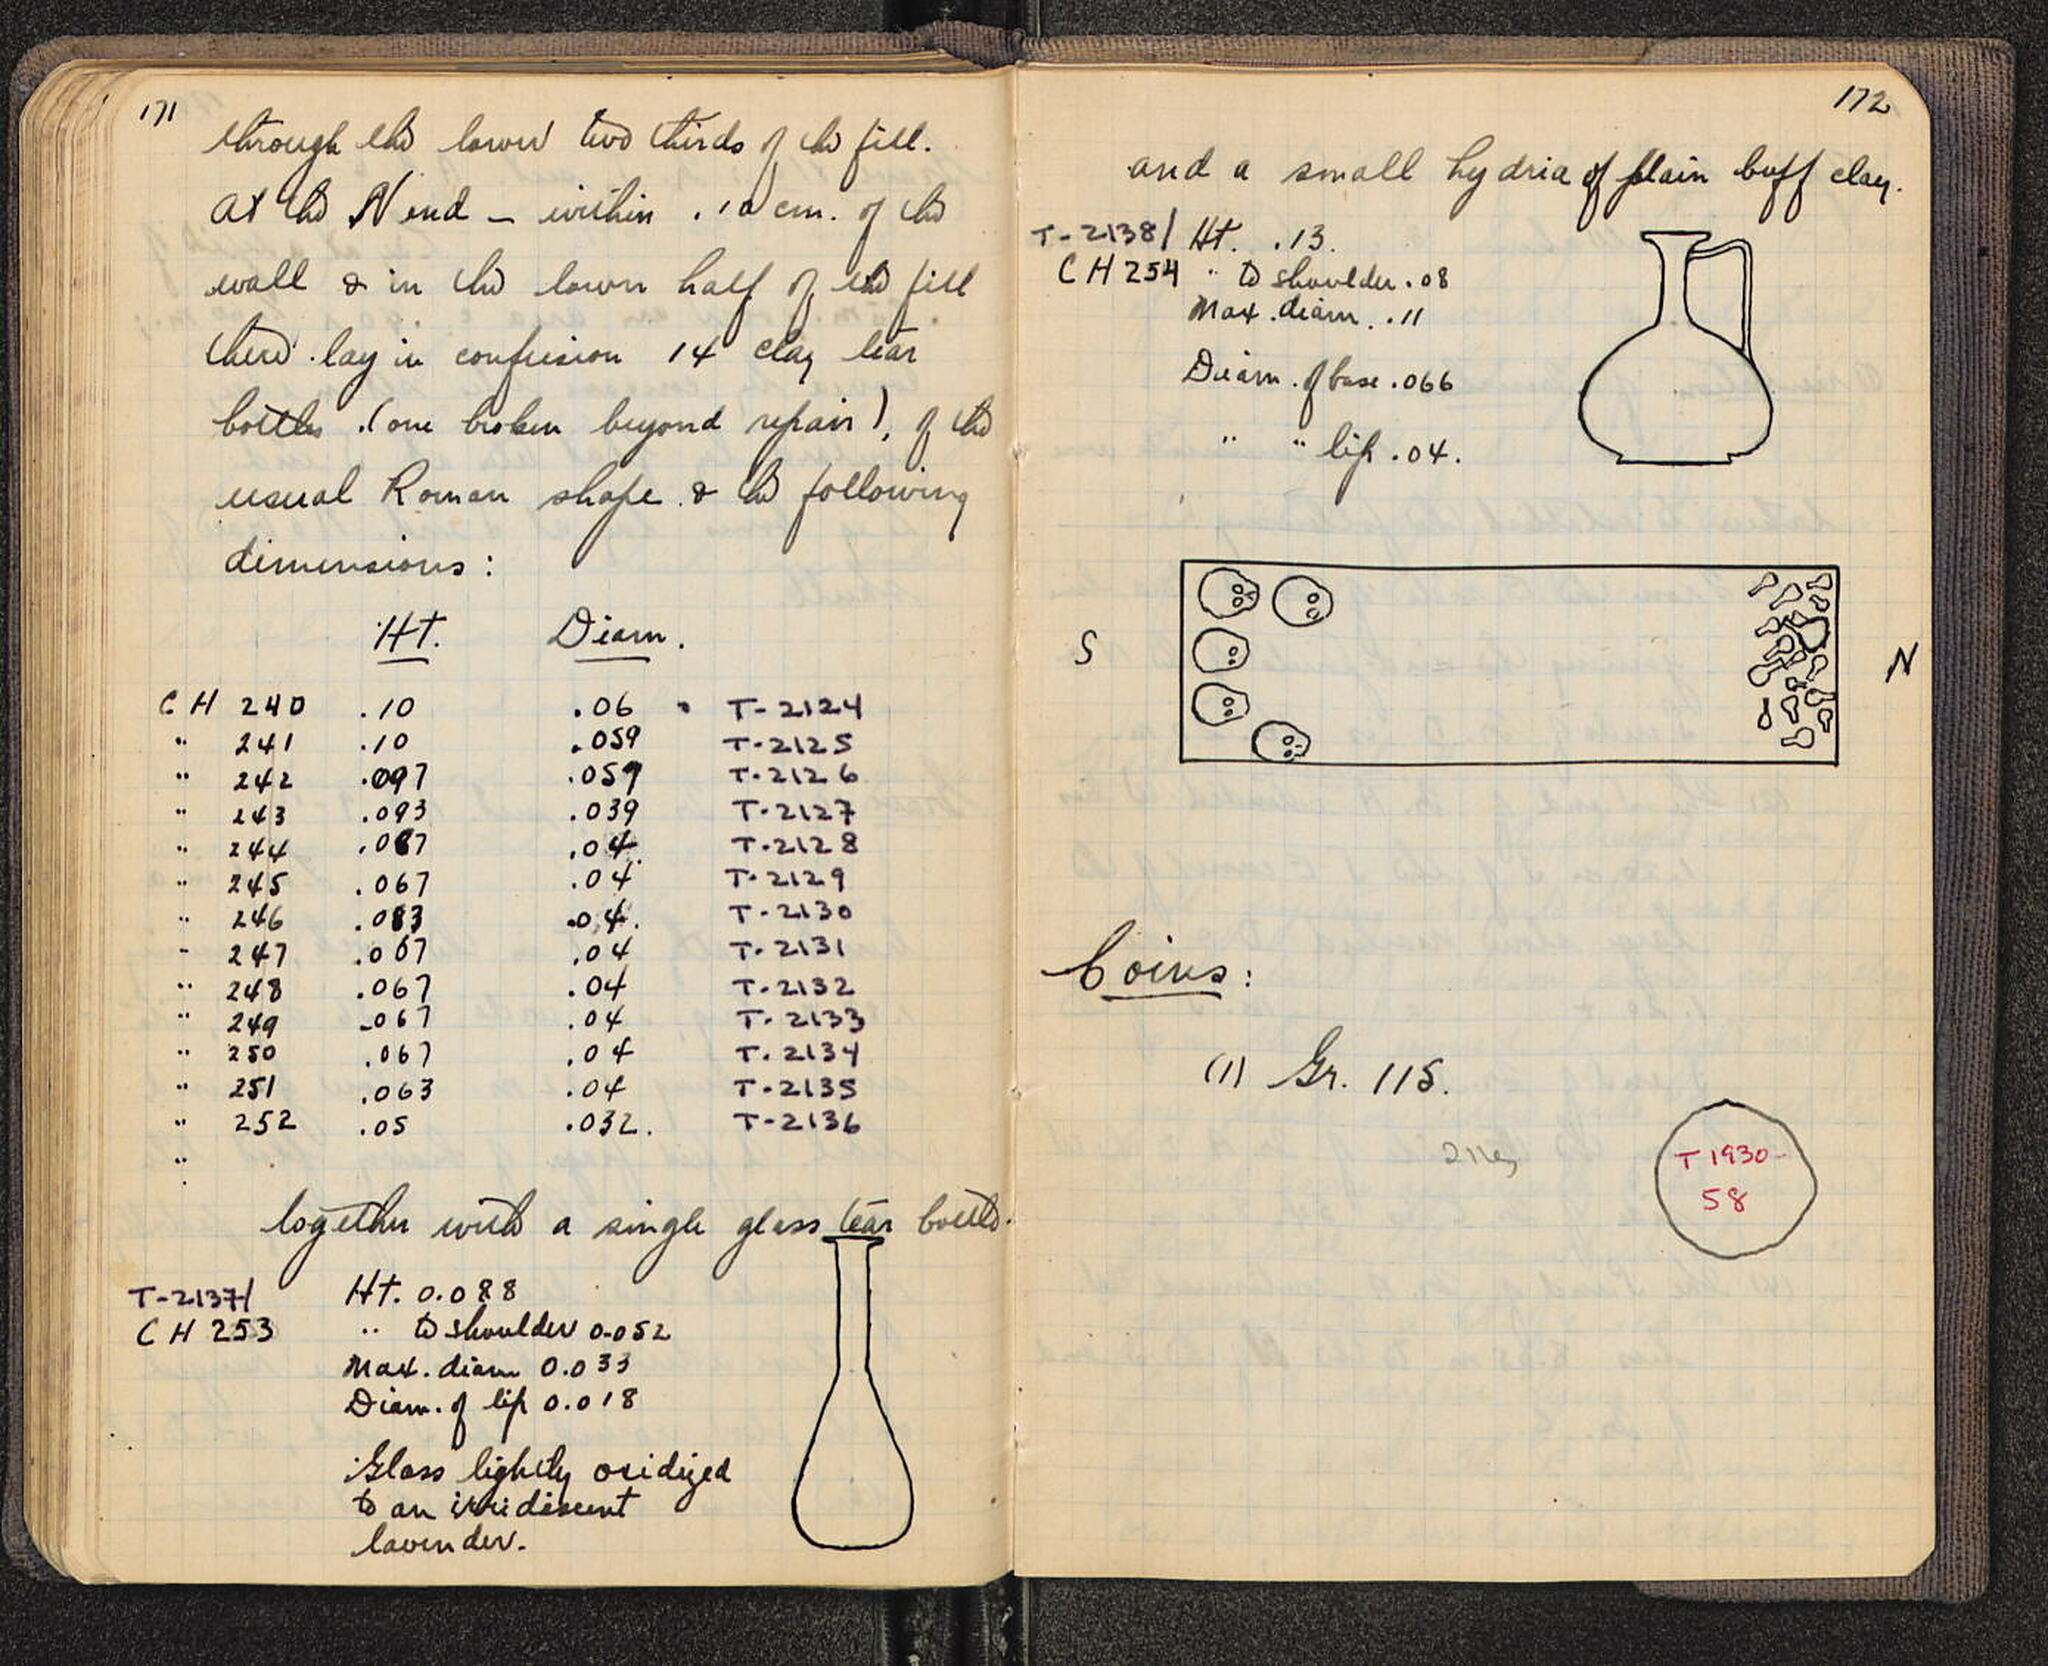 171
through the lower two thirds of the fill.
At the N end – within .10 cm. of the
wall & in the lower half of the fill
there lay in confusion 14 clay tear
bottles (one broken beyond repair), of the
usual Roman shape & the following
dimensions:
Ht. Diam.
CH 240 .10 .06 T-2124
" 241 .10 .059 T-2125
" 242 .097 .059 T-2126
" 243 .093 .039 T-2127
" 244 .087 .04 T-2128
" 245 .067 .04 T-2129
" 246 .083 .04. T-2130
" 247 .067 .04 T-2131
" 248 .067 .04 T-2132
" 249 .067 .04 T-2133
" 250 .067 .04 T-2134
" 251 .063 .04 T-2135
" 252 .05 .032. T-2136
"
together with a single glass tear bottle.
T-2137/ Ht. 0.088
CH 253 " to shoulder 0.052
Max. diam 0.033
Diam. of lip 0.018
Glass lightly oxidized
to an irridescent
lavender.
172
and a small hydria of plain buff clay.
T-2138/ Ht. .13.
CH 254 " to shoulder .08
Max. diam. .11
Diam. of base .066
" " lip .04.
S N
Coins:
(1) Gr. 115.
T 1930-
58